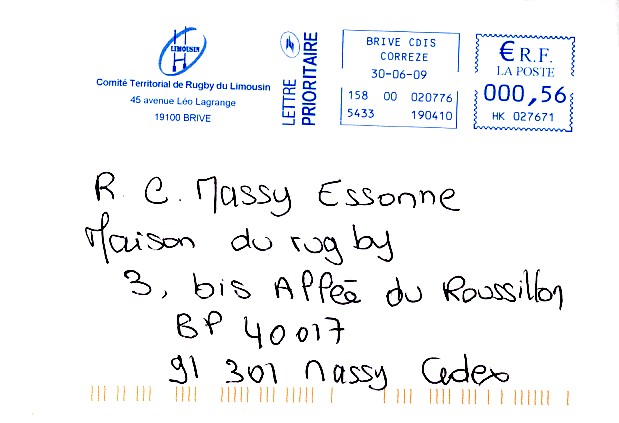 LIMOUSIN
Comité Territorial de Rugby du Limousin
45 avenue Léo Lagrange
19100 BRIVE
LETTRE
PRIORITAIRE
BRIVE CDIS
CORREZE
30-06-09
158 00 020776
5433 190410
€ R.F.
LA POSTE
000,56
HK 027671
R. C. Massy Essonne
Maison du rugby
3, bis Allée du Roussillon
BP 40017
91 301 Massy Cedex